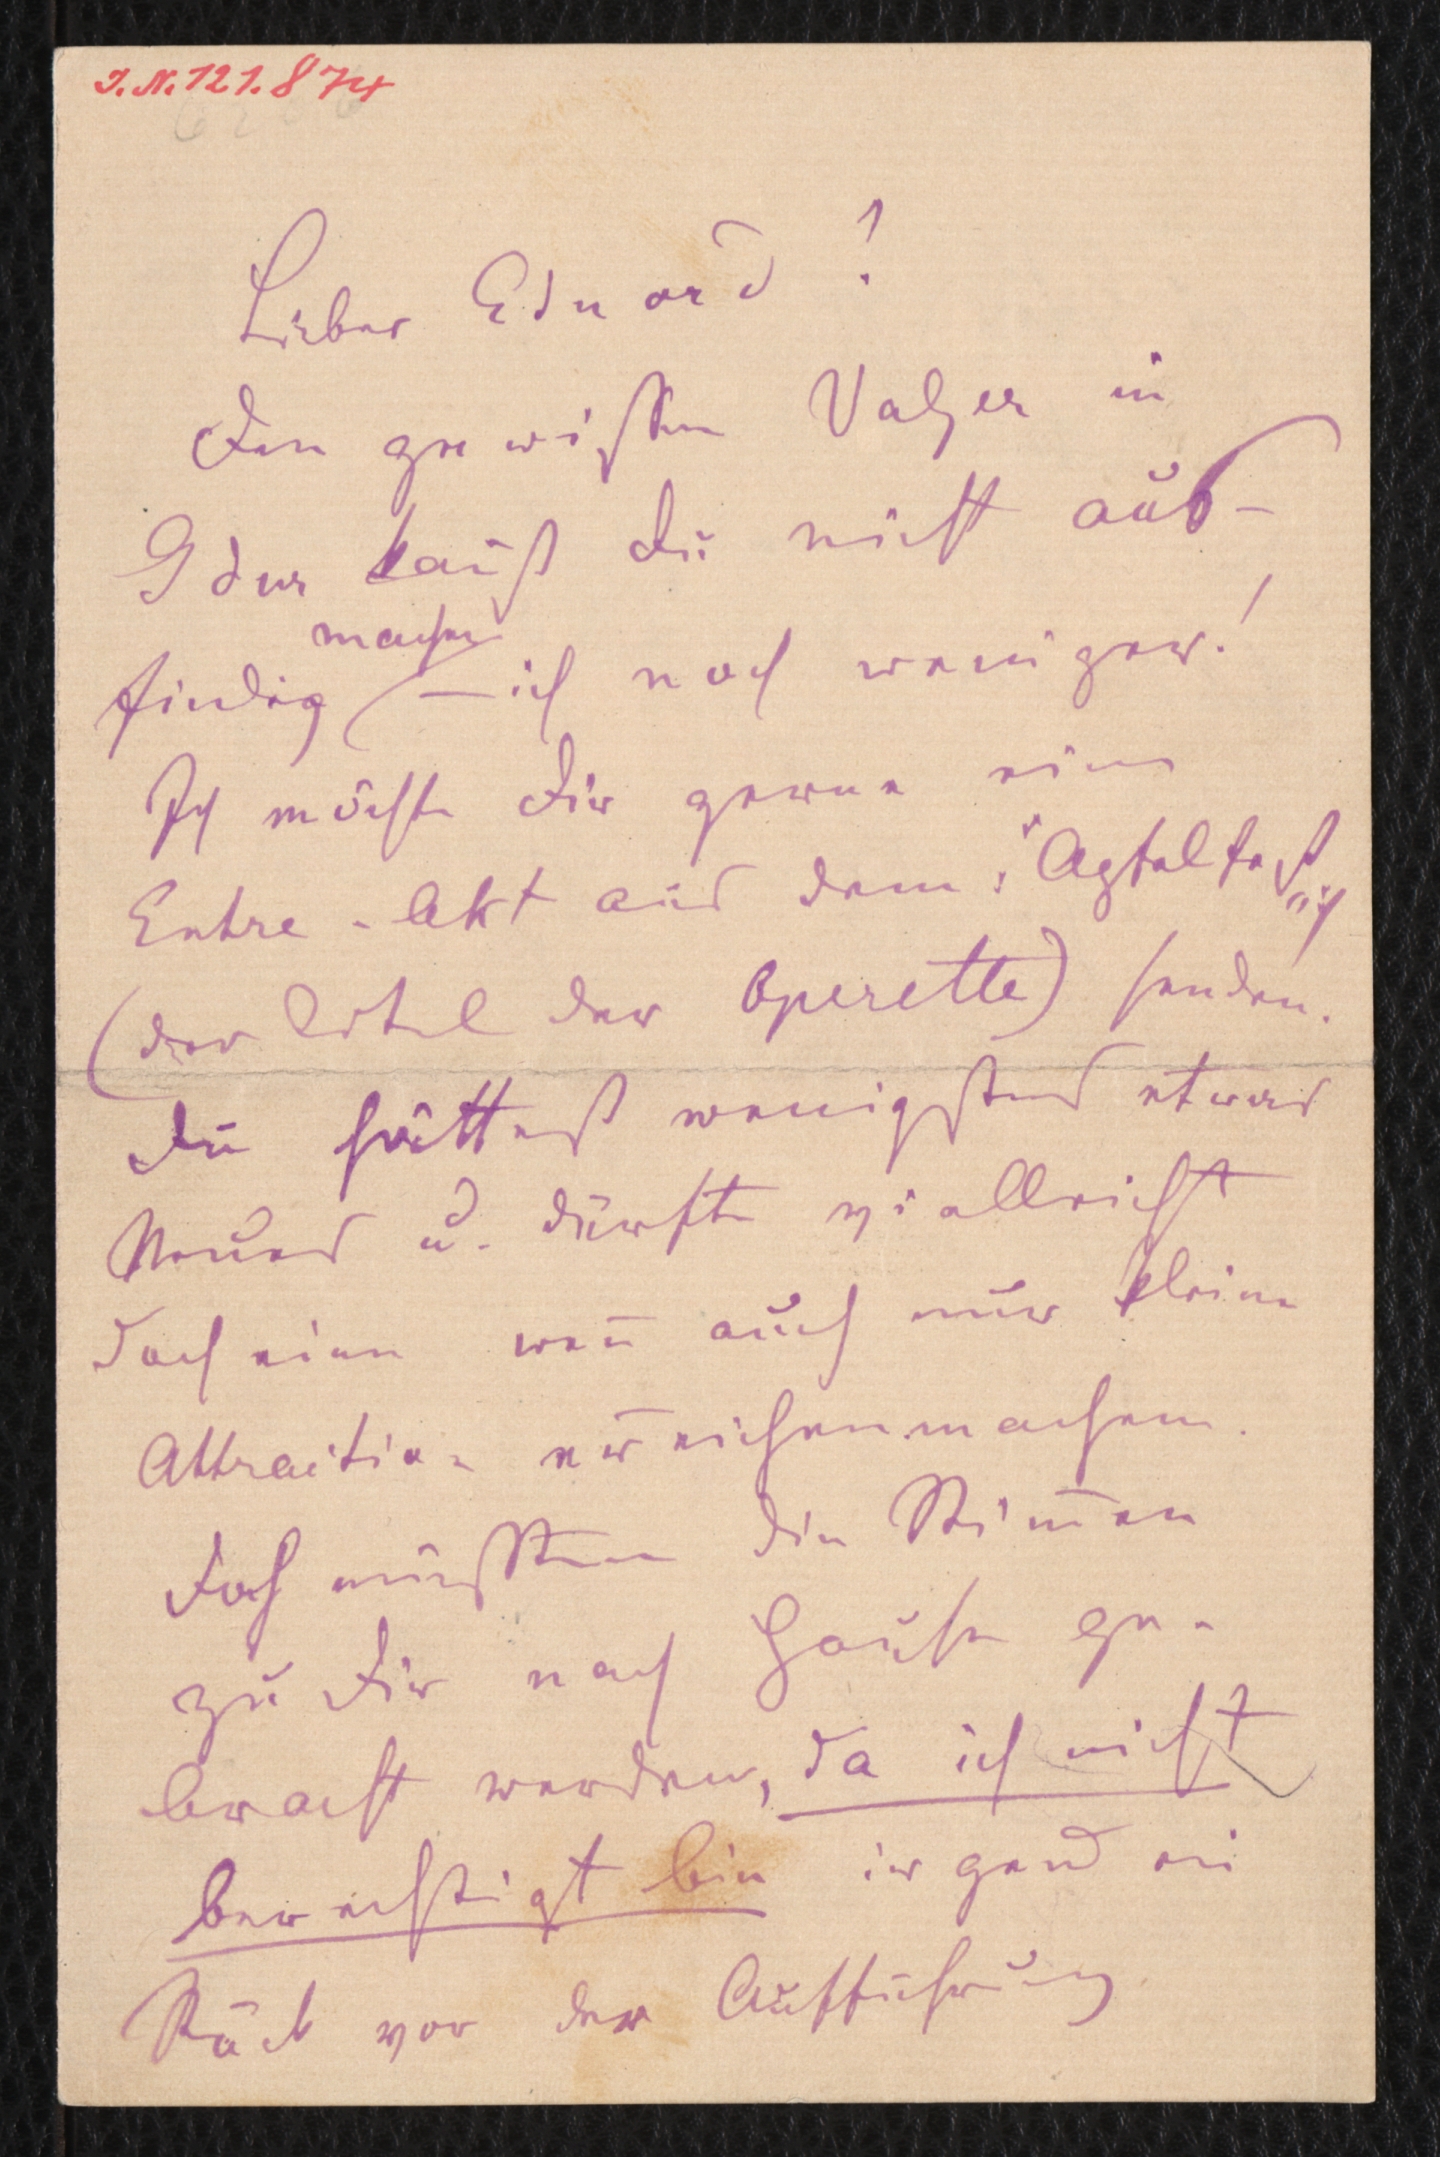 I.N. 121.874
Lieber Eduard!
Den gewissen Valzer in
G dur kañst Du nicht aus-
findig machen – ich noch weniger!
Ich möchte Dir gerne einen
Entre-Akt aus dem
(der Titel der Operette) senden.
Du hättest wenigstens etwas
Neues u. dürfte vielleicht
doch einen weñ auch nur kleine
Attraction erreichen machen.
Doch müssten die Stim̄en
zu Dir nach Hause ge-
bracht werden, da ich nicht
berechtigt bin irgend ein
Stück vor der Aufführung